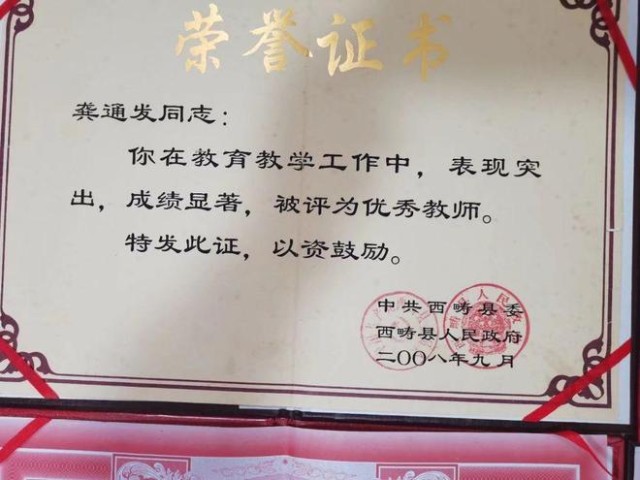 荣誉证书
龚通发同志：
你在教育教学工作中，表现突
出，成绩显著，被评为优秀教师。
特发此证，以资鼓励。
中共西畴县委
西畴县人民政府
二〇〇八年九月